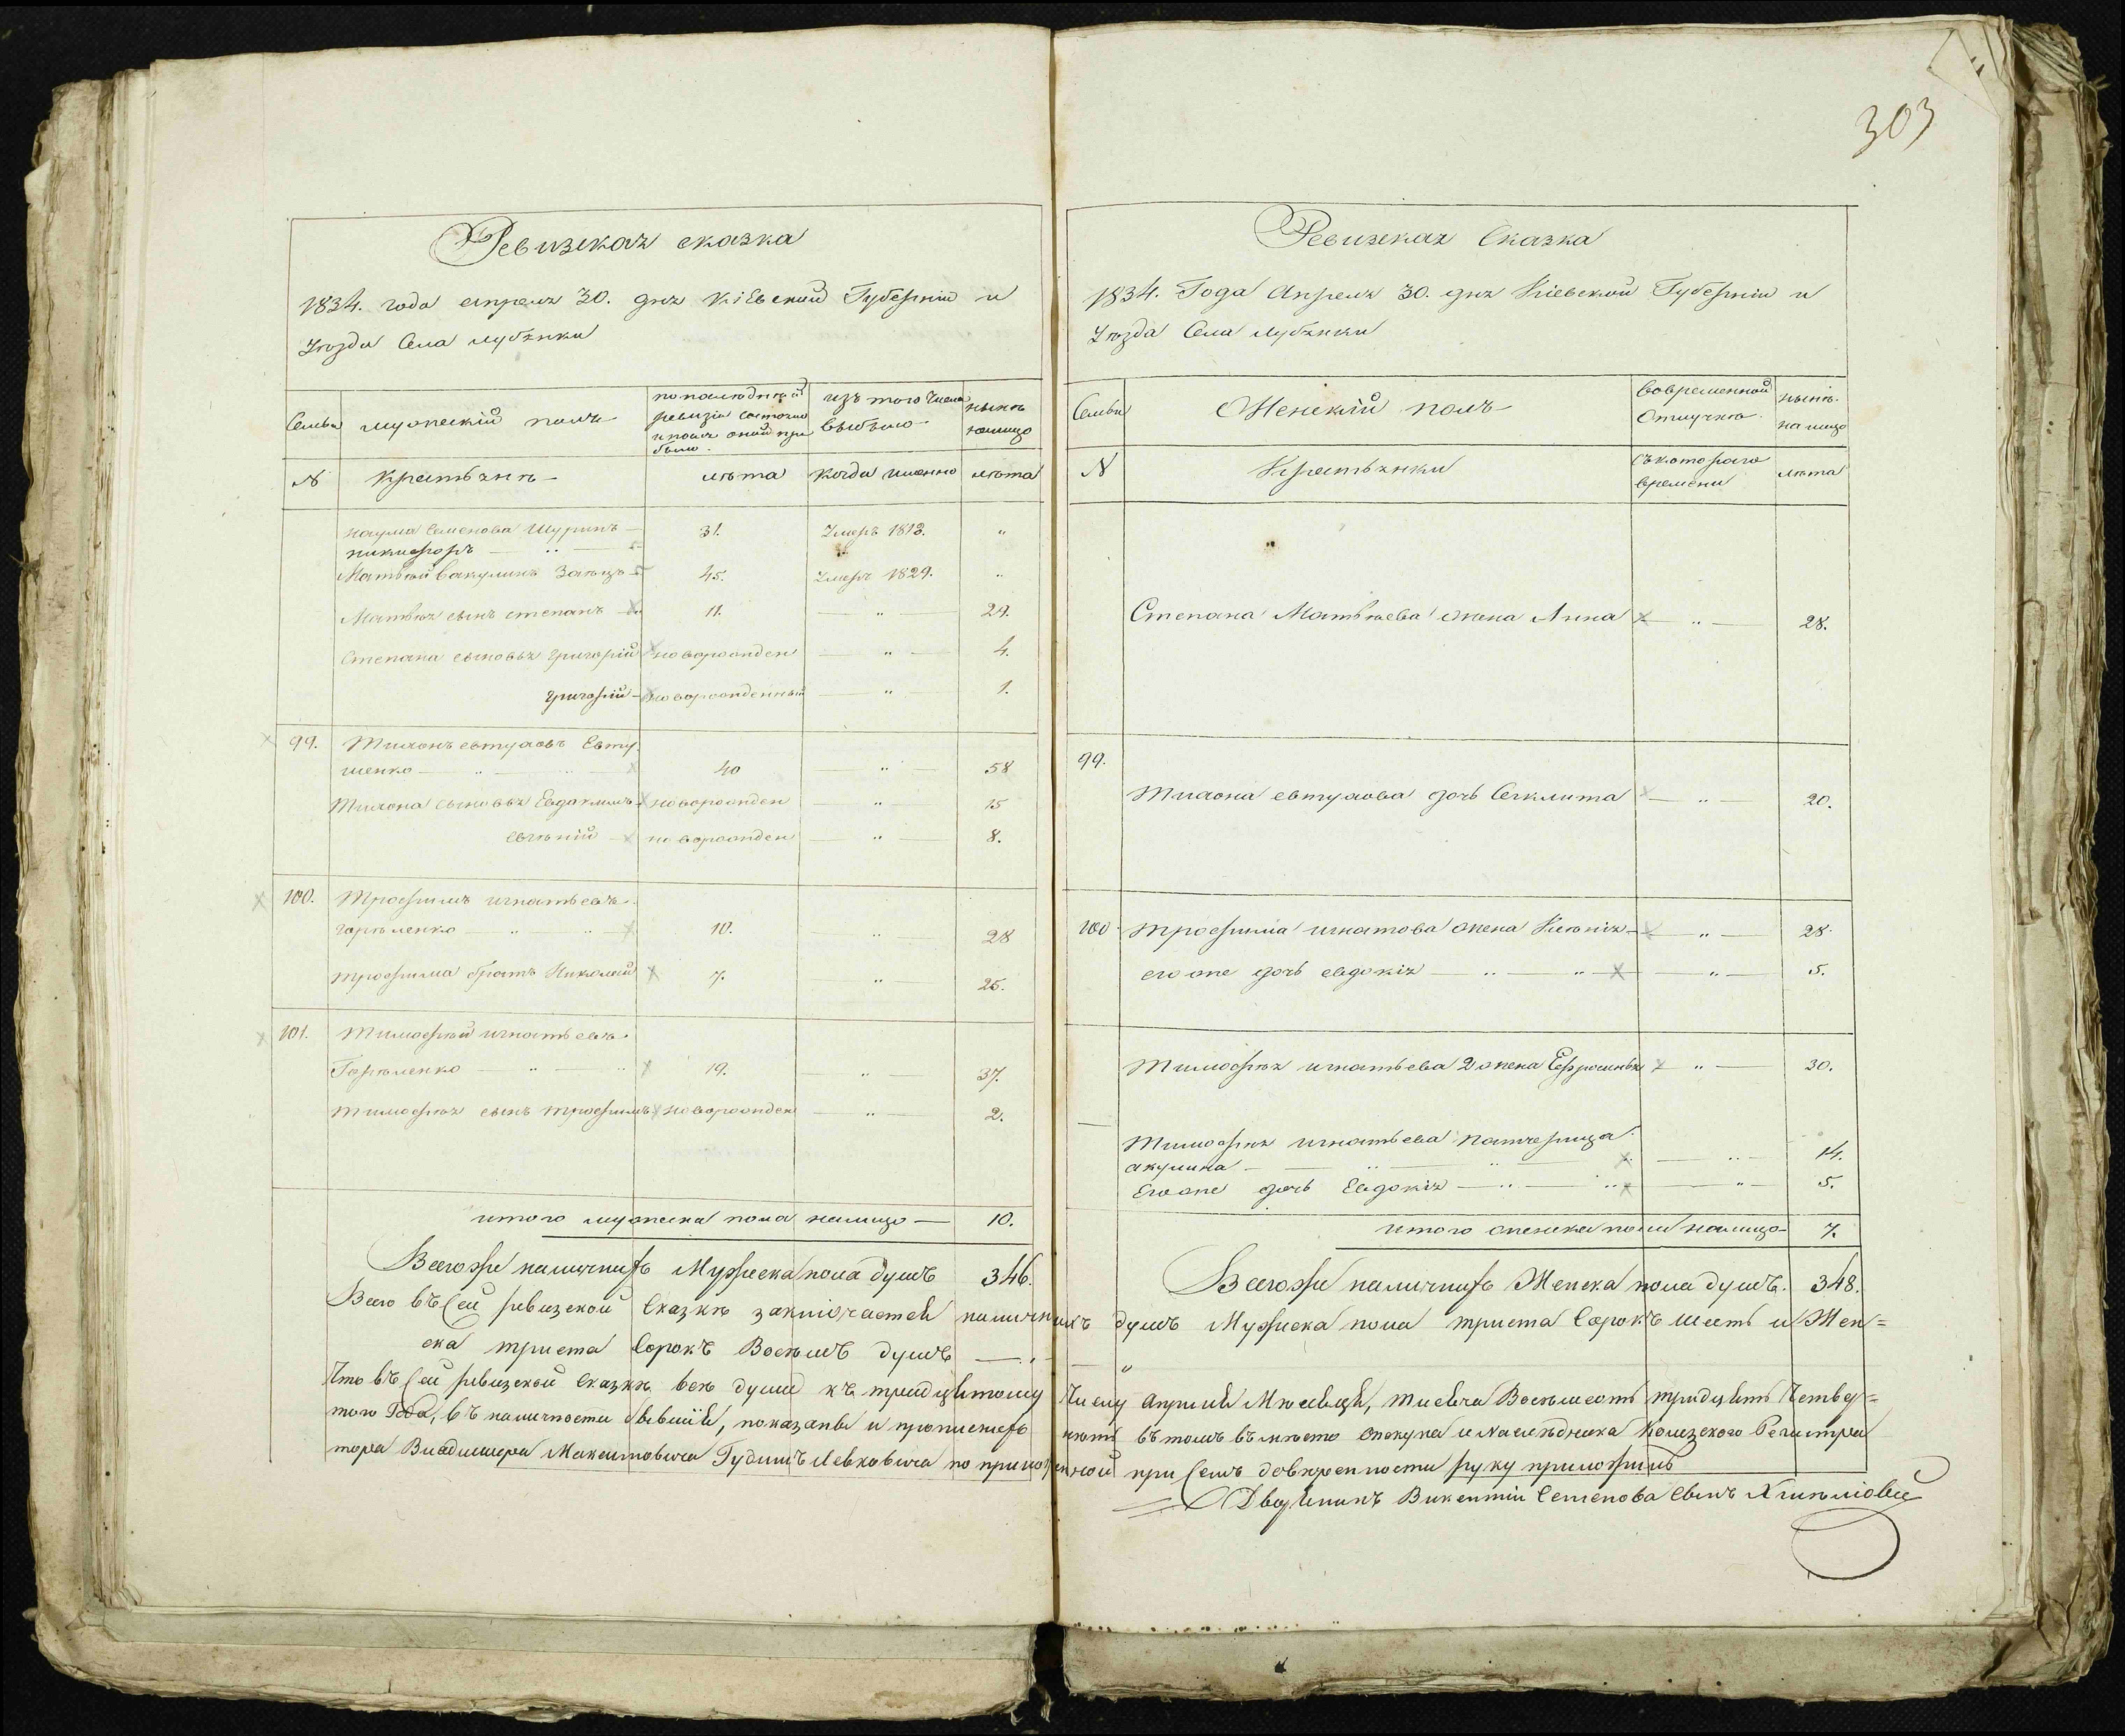 303
Ревизская сказка
1834. года апреля 30. дня Кіевской Губерніи и
Уѣзда Села Лубянки
Семьи
мужескій полъ
по последней
ревизіи состояло
и после оной при
было.
изъ того числа
выбыло
нынѣ
налицо
N
Крестьянѣ
лѣта
когда именно
лѣта
Наума Семенова Шуринъ
Никифоръ
31.
Умеръ 1813.
Матвѣй Вакулинъ Заяцъ
45.
Умеръ 1829.
Матвѣя сынъ степанъ
11.
29.
Степана сыновья Григорій
новорожден
4.
Григорій
новорожденный
1.
99.
Тихонъ евтуховъ Евту
шенко
40
58
Тихона сыновья Евдокимъ
новорожден
15
Евгѣній
новорожден
8.
100.
Трофимъ игнатьевъ
Горѣленко
10.
28
Трофима братъ Николай
7.
25.
101.
Тимофѣй игнатьевъ
Горѣленко
19.
37.
Тимофѣя сынъ трофимъ
новорожден
2.
итого мужеска пола налицо
10.
Всегоже наличнихъ Мужеска пола душъ
346.
Ревизская Сказка
1834. Года Апреля 30. дня Кіевской Губерніи и
Уѣзда Села Лубянки
Семьи
Женскій полъ
Вовременной
Отлучкѣ
нынѣ
налицо
N
Крестьянки
Съкотораго
времени
лѣта
Степана Матвѣева жена Анна
28.
99.
Тихона евтухова дочь Секлита
20.
100
Трофима игнатова жена Ксѣнія
28.
его же дочь евдокія
5.
Тимофѣя игнатьева 2 жена Ефросинья
30.
Тимофѣя игнатьева патчерица
акулина
14.
Его же дочь Евдокія
5.
итого женска пола налицо
7.
Всегоже наличнихъ Женска пола душъ.
348.
Всего въ сей ревизской Сказкѣ заключается наличнихъ душъ Мужеска пола триста Сорокъ шесть и Жен=
ска триста Сорокъ Восѣмъ душъ
Что въ сей ревизской Сказкѣ всѣ души къ тридцятому Числу Апрѣля Мѣсяця, тисяча Восѣмсотъ тридцять Четвер=
того Года, въ наличности бывшія, показаны и прописнихъ нѣтъ въ томъ въмѣсто опекуна и Наслѣдника Колѣзского Регистра
тора Владимѣра Максимовича Гудимъ Левковича по приложенной при семъ довѣренности руку приложилъ
Дворянинъ Викентій Семенова сынъ